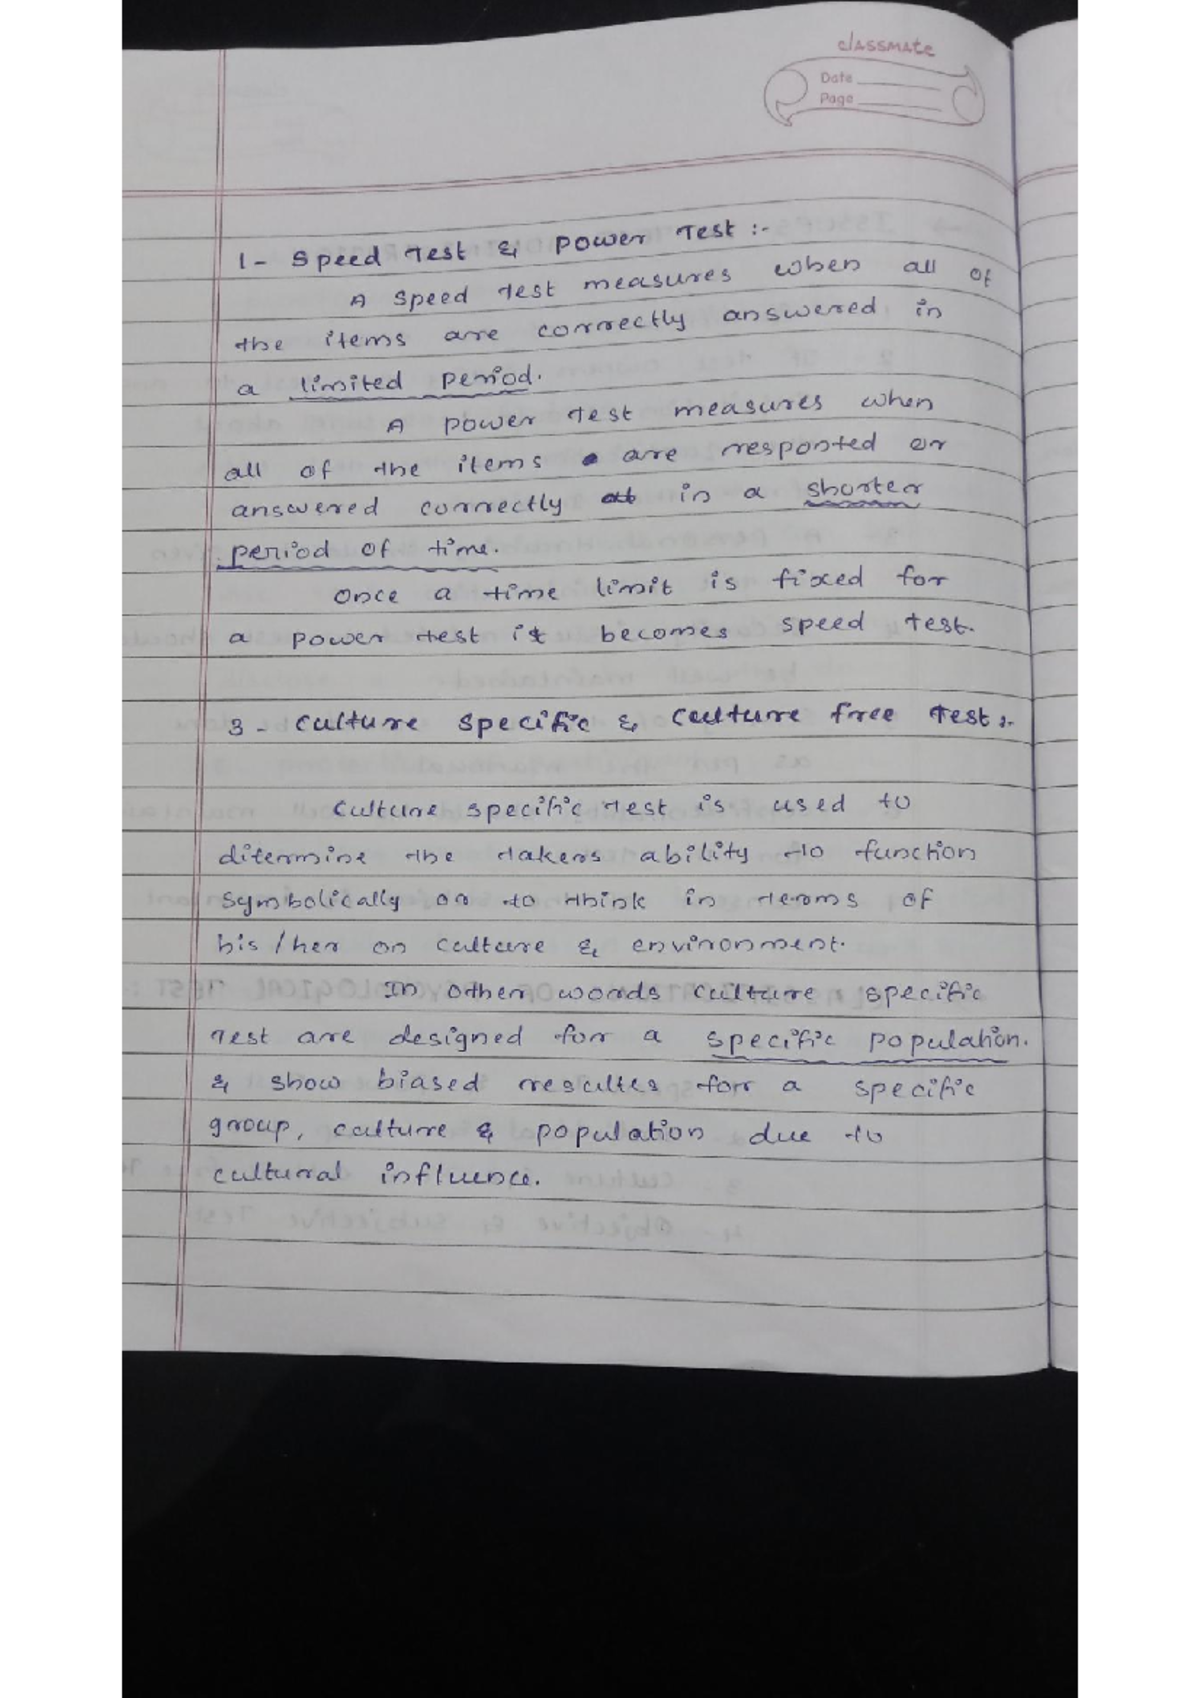 classmate
Date
Page
1- Speed Test & Power Test :-
A speed test measures when all of
the items are correctly answered in
a limited period.
A power test measures when
all of the items are responted or
answered correctly in a shorter
period of time.
Once a time limit is fixed for
a power test it becomes speed test.
3- Culture specific & Culture free Test:-
Culture specific test is used to
ditermine the takers ability to function
symbolically or to think in terms of
his/her on culture & environment.
In other words culture specific
Test are designed for a specific population.
& show biased resultes for a specific
group, culture & population due to
cultural influence.